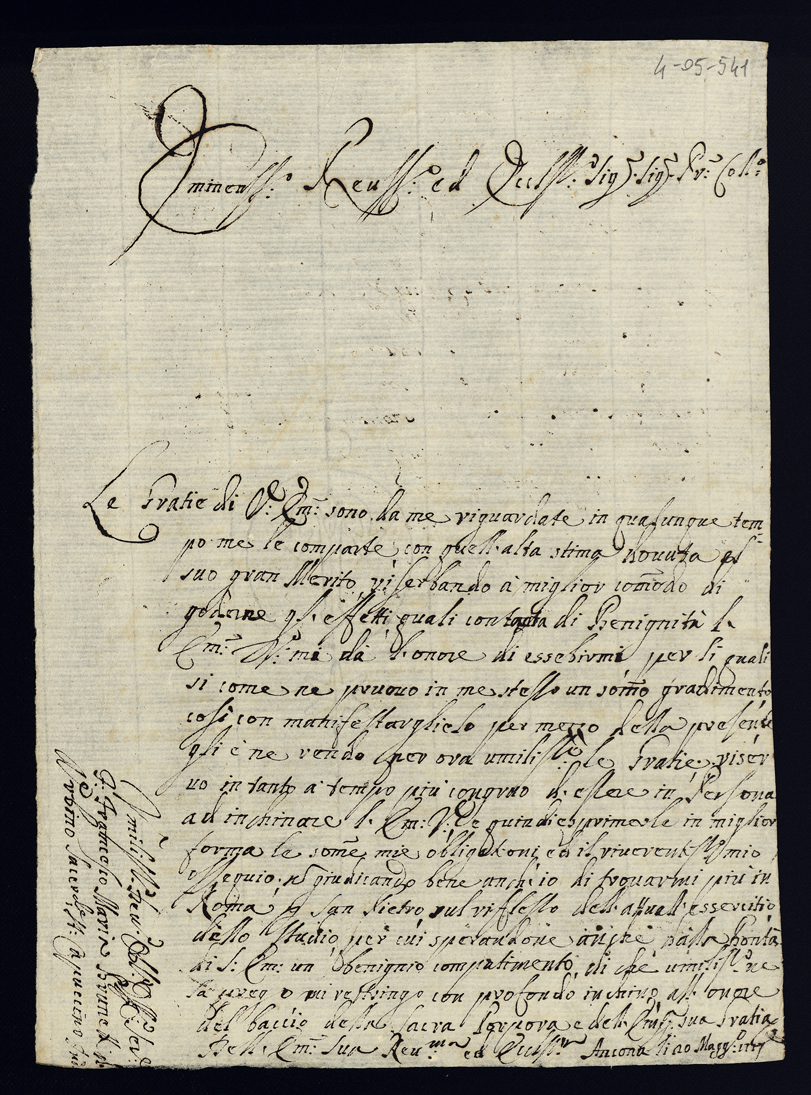 4-05-541
Eminentiss:º Reuss:º ed Eccell:º Sig:r Sig:r Pr:ne Col:º
Le Gratie di V: Em: sono da me riguardate in qualunque tem-
po me le comparte con quell'alta stima dovuta al
suo gran Merito, riserbando à miglior comodo di
goderne gl'effetti quali con tanta di Benignità l'
Em: V: mi dà l'onore di essebirmi per li quali
si come ne pruouo in me stesso un som̃o gradimento
così con manifestarglielo per mezzo della presente
gli è ne rendo per ora umiliss:e le Gratie, riser
uo in tanto a tempo più congruo d'essere in Persona
ad inchinare l'Em: V: e quindi esprimerle in miglior
forma le some mie obligationi ed il riuerentissimo mio
ossequio, giudicando bene anch'io di trouarmi più in
Roma San Pietro sul riflesso dell'attual essercitio
dello Studio per cui sperandone anche dalla Bontà
di S: Em: un benignio compatimento, di che umilissº ne
la preg o mi restringo con profondo inchino all'onore
del baccio della Sacra Porpora e dell' sua Gratia
Dell'Em: Sua Reu:ma ed Eccell:ma Ancona li 20 Magg:º
Umiliss: Deu: Obl: Ser:
F: Francesco Maria
Urbino Sacerdote Capuccino